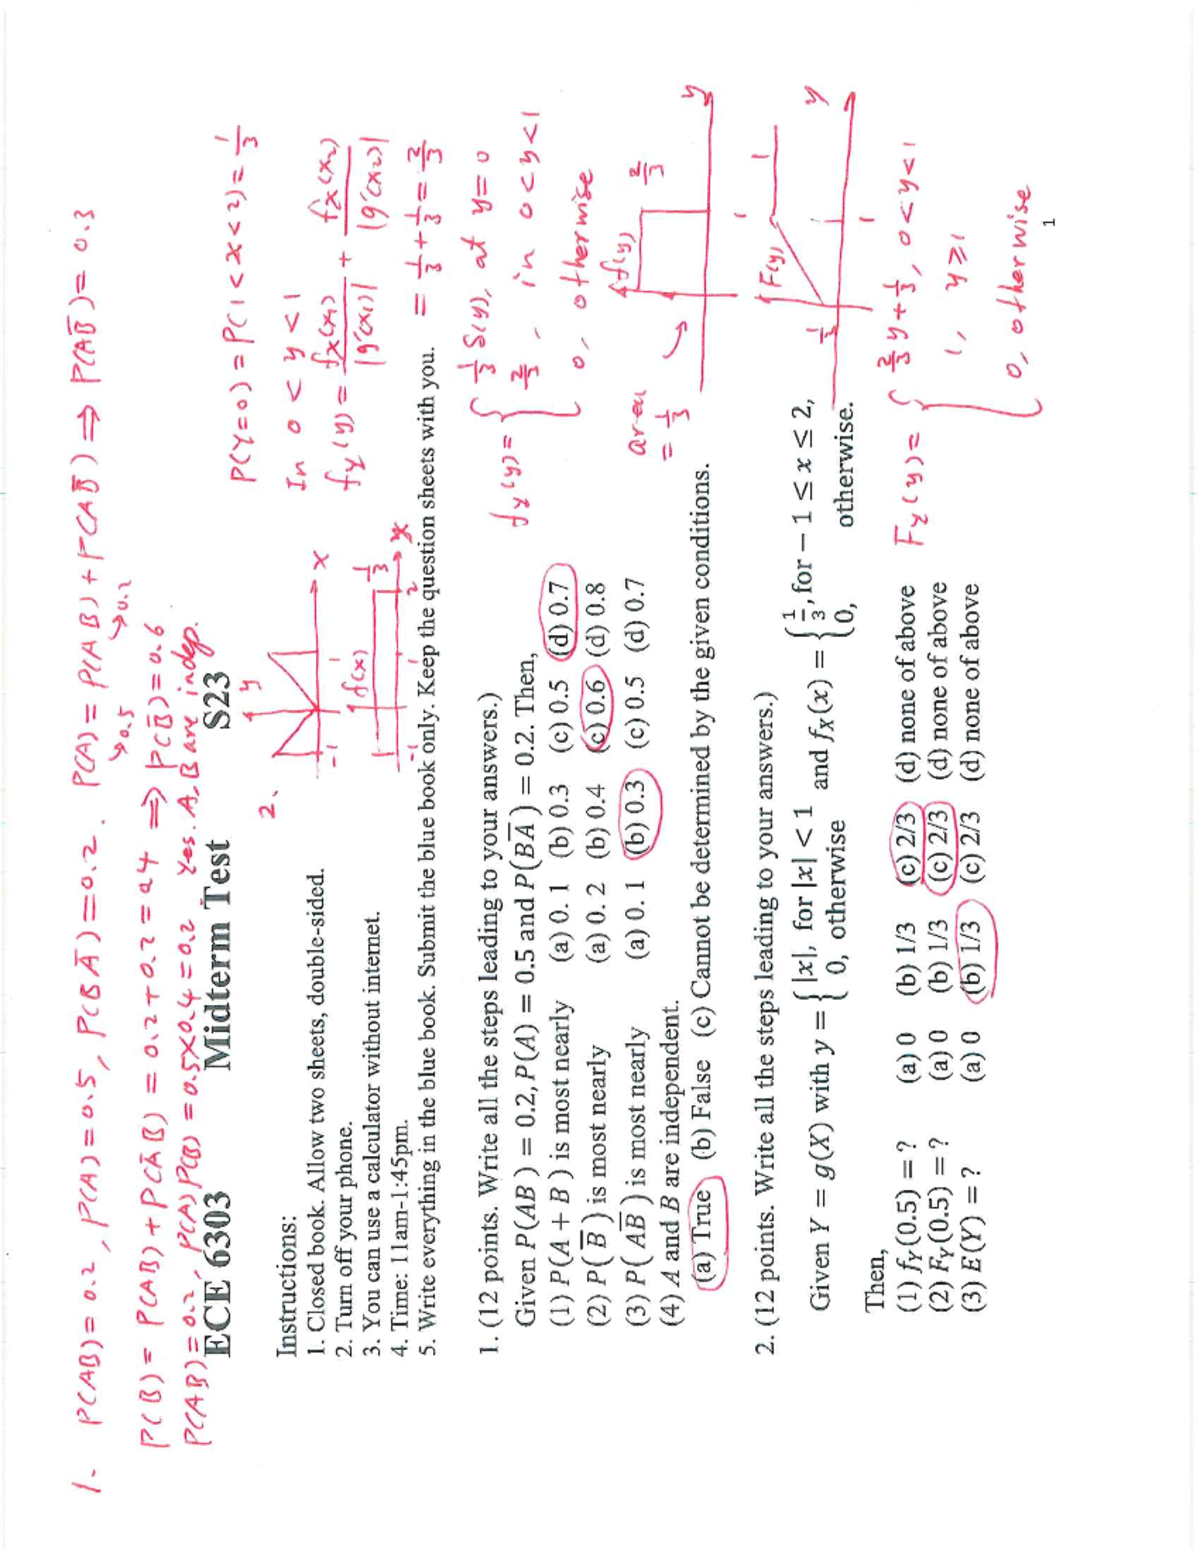 1. P(AB) = 0.2, P(A) = 0.5, P(BĀ) = 0.2. P(A) = P(AB) + P(AB̄) ⇒ P(AB̄) = 0.3
↳0.5 ↳0.2
P(B) = P(AB) + P(ĀB) = 0.2 + 0.2 = 0.4 ⇒ P(B̄) = 0.6
P(AB) = 0.2, P(A)P(B) = 0.5×0.4 = 0.2 Yes. A, B are indep.
ECE 6303 Midterm Test S23
2.
y
x
-1 1
f(x)
1/3
-1 1 2 x
P(Y=0) = P(1<X<2) = 1/3
In 0<y<1
f_Y(y) = f_X(x_1)/|g'(x_1)| + f_X(x_2)/|g'(x_2)|
= 1/3 + 1/3 = 2/3
Instructions:
1. Closed book. Allow two sheets, double-sided.
2. Turn off your phone.
3. You can use a calculator without internet.
4. Time: 11am-1:45pm.
5. Write everything in the blue book. Submit the blue book only. Keep the question sheets with you.
1. (12 points. Write all the steps leading to your answers.)
Given P(AB ) = 0.2, P(A) = 0.5 and P(BĀ ) = 0.2. Then,
(1) P(A + B ) is most nearly (a) 0. 1 (b) 0.3 (c) 0.5 (d) 0.7
(2) P( B̄ ) is most nearly (a) 0. 2 (b) 0.4 (c) 0.6 (d) 0.8
(3) P( AB̄ ) is most nearly (a) 0. 1 (b) 0.3 (c) 0.5 (d) 0.7
(4) A and B are independent.
(a) True (b) False (c) Cannot be determined by the given conditions.
f_Y(y) = { 1/3 δ(y), at y=0
2/3, in 0<y<1
0, otherwise
area = 1/3
f(y)
2/3
1
y
2. (12 points. Write all the steps leading to your answers.)
Given Y = g(X) with y = { |x|, for |x| < 1
0, otherwise
and f_X(x) = { 1/3, for − 1 ≤ x ≤ 2,
0, otherwise.
F(y)
1
1/3
1
y
Then,
(1) f_Y(0.5) = ? (a) 0 (b) 1/3 (c) 2/3 (d) none of above
(2) F_Y(0.5) = ? (a) 0 (b) 1/3 (c) 2/3 (d) none of above
(3) E(Y) = ? (a) 0 (b) 1/3 (c) 2/3 (d) none of above
F_Y(y) = { 2/3 y + 1/3, 0<y<1
1, y≥1
0, otherwise
1